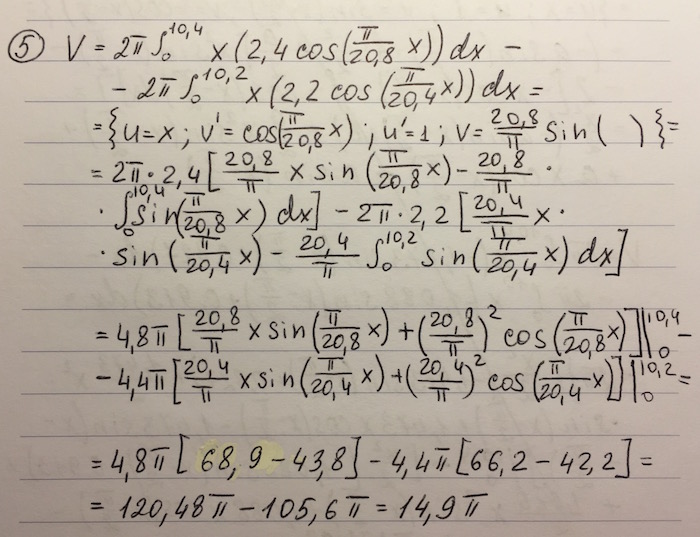 ⑤ V = 2π∫₀^10,4 x(2,4 cos(π/20,8 x))dx −
− 2π∫₀^10,2 x(2,2 cos(π/20,4 x))dx =
= {u=x; v'=cos(π/20,8 x); u'=1; v=20,8/π sin( )} =
= 2π·2,4[20,8/π x sin(π/20,8 x) − 20,8/π ·
· ∫₀^10,4 sin(π/20,8 x)dx] − 2π·2,2[20,4/π x ·
· sin(π/20,4 x) − 20,4/π ∫₀^10,2 sin(π/20,4 x)dx]
= 4,8π[20,8/π x sin(π/20,8 x) + (20,8/π)² cos(π/20,8 x)]|₀^10,4 −
− 4,4π[20,4/π x sin(π/20,4 x) + (20,4/π)² cos(π/20,4 x)]|₀^10,2 =
= 4,8π[68,9 − 43,8] − 4,4π[66,2 − 42,2] =
= 120,48π − 105,6π = 14,9π